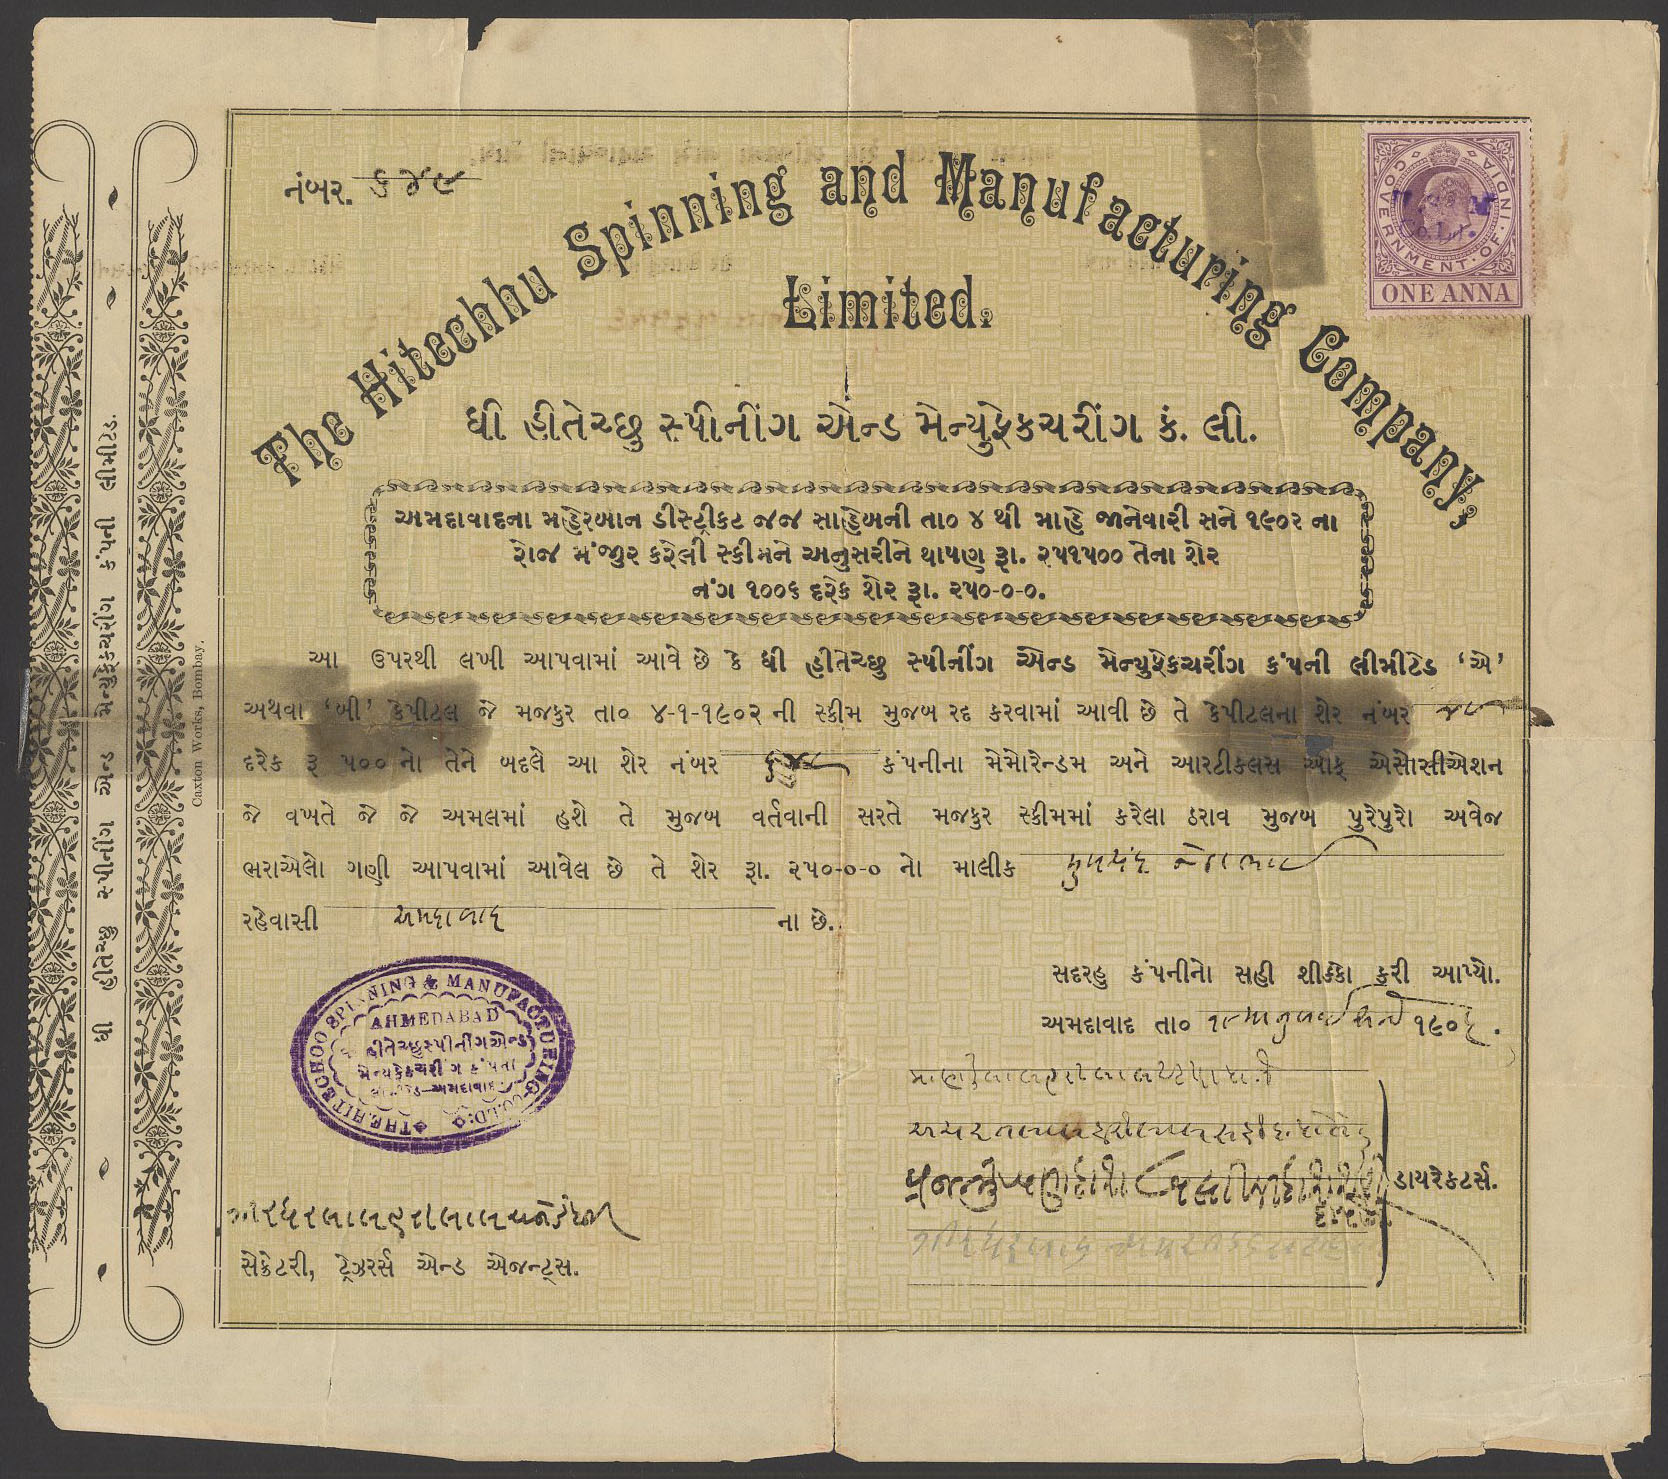 નંબર. ૬૪૯
The Hitechhu Spinning and Manufacturing Company,
Limited.
GOVERNMENT·OF·INDIA
ONE ANNA
ધી હીતેચ્છુ સ્પીનીંગ એન્ડ મેન્યુફેકચરીંગ કં. લી.
અમદાવાદના મહેરબાન ડીસ્ટ્રીકટ જજ સાહેબની તા૦ ૪ થી માહે જાનેવારી સને ૧૯૦૨ ના
રોજ મંજુર કરેલી સ્કીમને અનુસરીને થાપણ રૂા. ૨૫૧૫૦૦ તેના શેર
નંગ ૧૦૦૬ દરેક શેર રૂા. ૨૫૦-૦-૦.
આ ઉપરથી લખી આપવામાં આવે છે કે ધી હીતેચ્છુ સ્પીનીંગ એન્ડ મેન્યુફેકચરીંગ કંપની લીમીટેડ ‘એ’
અથવા ‘બી’ કેપીટલ જે મજકુર તા૦ ૪-૧-૧૯૦૨ ની સ્કીમ મુજબ રદ કરવામાં આવી છે તે કેપીટલના શેર નંબર
દરેક રૂ ૫૦૦ નો તેને બદલે આ શેર નંબર ૬૪૯ કંપનીના મેમોરેન્ડમ અને આરટીકલસ ઓફ એસોસીએશન
જે વખતે જે જે અમલમાં હશે તે મુજબ વર્તવાની સરતે મજકુર સ્કીમમાં કરેલા ઠરાવ મુજબ પુરેપુરો અવેજ
ભરાએલો ગણી આપવામાં આવેલ છે તે શેર રૂા. ૨૫૦-૦-૦ નો માલીક
રહેવાસી અમદાવાદ ના છે.
સદરહુ કંપનીનો સહી શીક્કો કરી આપ્યો.
અમદાવાદ તા૦ ૧૯૦
THE HITECHOO SPINNING & MANUFACTURING CO. LD:
AHMEDABAD
હીતેચ્છુ સ્પીનીંગ એન્ડ
મેન્યુફેકચરીંગ કંપની
અમદાવાદ
ડાયરેકટર્સ.
સેક્રેટરી, ટ્રેઝરર્સ એન્ડ એજન્ટ્સ.
ધી હીતેચ્છુ સ્પીનીંગ એન્ડ મેન્યુફેકચરીંગ કંપની લીમીટેડ.
Caxton Works, Bombay.